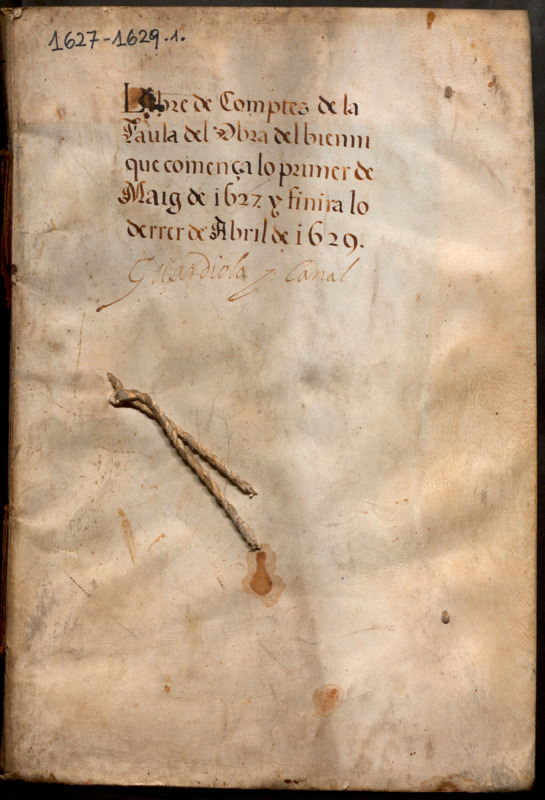 1627-1629.1.
Llibre de Comptes de la
Taula del Obra del bienni
que comença lo primer de
Maig de 1627. y finira lo
derrer de Abril de 1629.
Guardiola y Canal